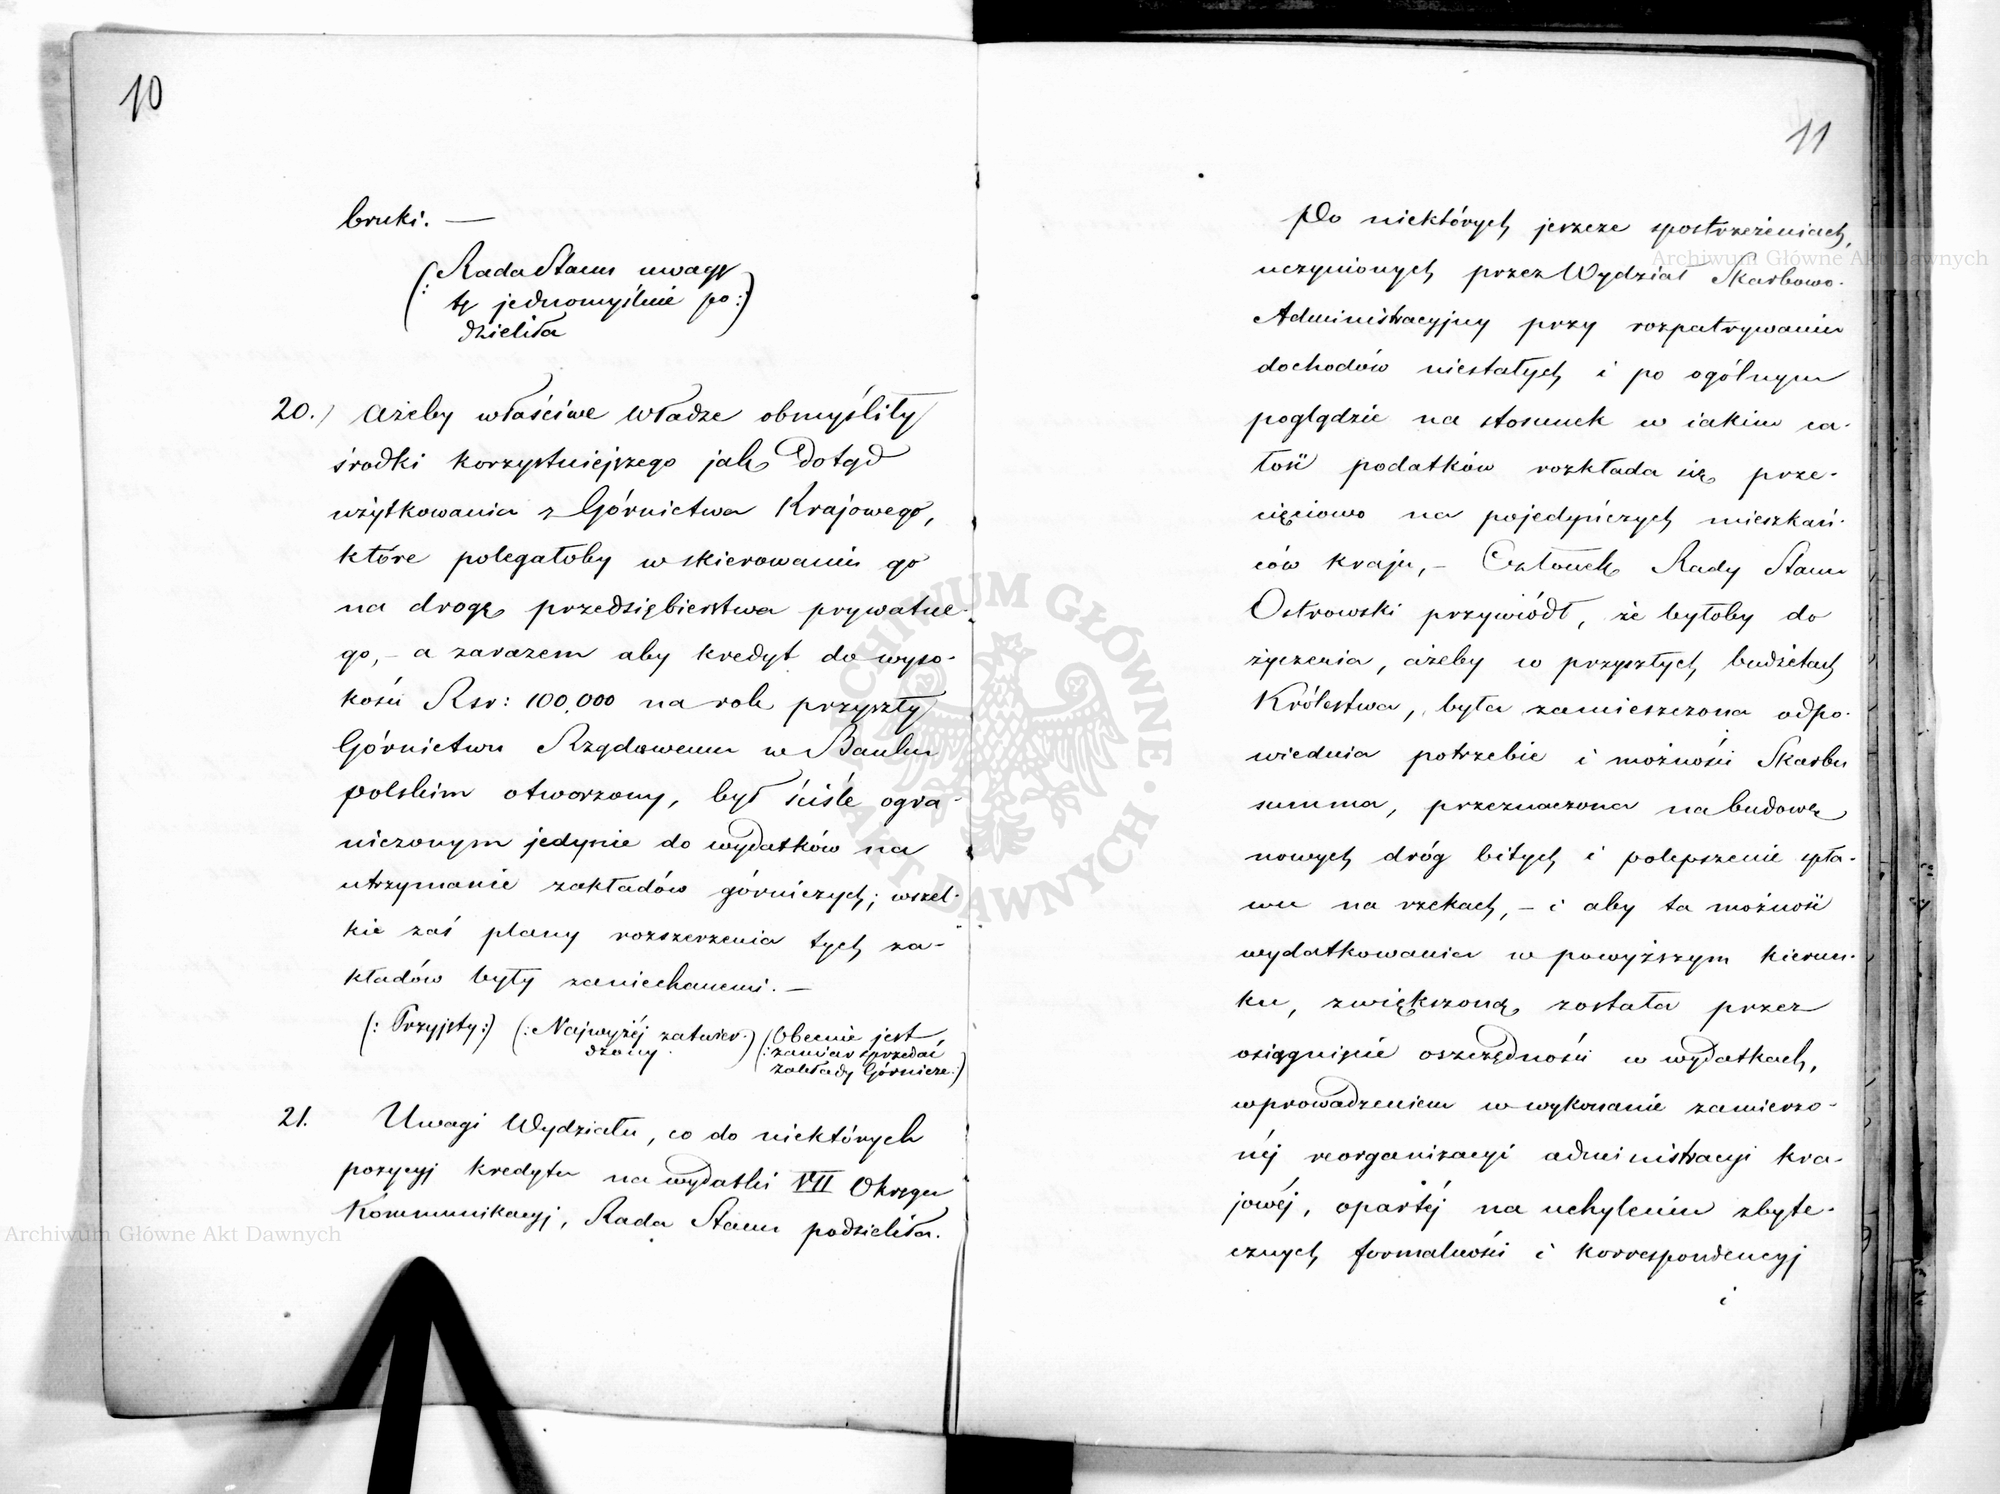 10
bruki. —
(: Rada Stanu uwagę
tę jednomyślnie po :)
dzieliła
20.) Ażeby właściwe Władze obmyśliły
środki korzystniejszego jak dotąd
użytkowania z Górnictwa Krajowego,
które polegałoby w skierowaniu go
na drogę przedsiębierstwa prywatne-
go, – a zarazem aby kredyt do wyso-
kości Rsr: 100,000 na rok przyszły
Górnictwu Rządowemu w Banku
polskim otworzony, był ściśle ogra-
niczonym jedynie do wydatków na
utrzymanie zakładów górniczych; wszel-
kie zaś plany rozszerzenia tych za-
kładów były zaniechanemi. —
(: Przyjęty :) (: Najwyżéj zatwier- :) (: Obecnie jest
dzony. zamiar sprzedać
zakłady Górnicze :)
21. Uwagi Wydziału, co do niektórych
pozycyj kredytu na wydatki VII Okręgu
Kommunikacyj, Rada Stanu podzieliła.
11
Po niektórych jeszcze spostrzeżeniach,
uczynionych przez Wydział Skarbowo-
Administracyjny przy rozpatrywaniu
dochodów niestałych i po ogólnym
poglądzie na stosunek w iakim ca-
łość podatków rozkłada się prze-
cięciowo na pojedyńczych mieszkań-
ców kraju, – Członek Rady Stanu
Ostrowski przywiódł, że byłoby do
życzenia, ażeby w przyszłych budżetach
Królestwa, była zamieszczona odpo-
wiednia potrzebie i możności Skarbu
summa, przeznaczona na budowę
nowych dróg bitych i polepszenie spła-
wu na rzekach, – i aby ta możność
wydatkowania w powyższym kierun-
ku, zwiększoną została przez
osiągnięcie oszczędności w wydatkach,
wprowadzeniem w wykonanie zamierzo-
néj reorganizacyi administracyi kra-
jowéj, opartéj na uchyleniu zbyte-
cznych formalności i korrespondencyj
i
Archiwum Główne Akt Dawnych
Archiwum Główne Akt Dawnych
Archiwum Główne Akt Dawnych
ARCHIWUM GŁÓWNE AKT DAWNYCH